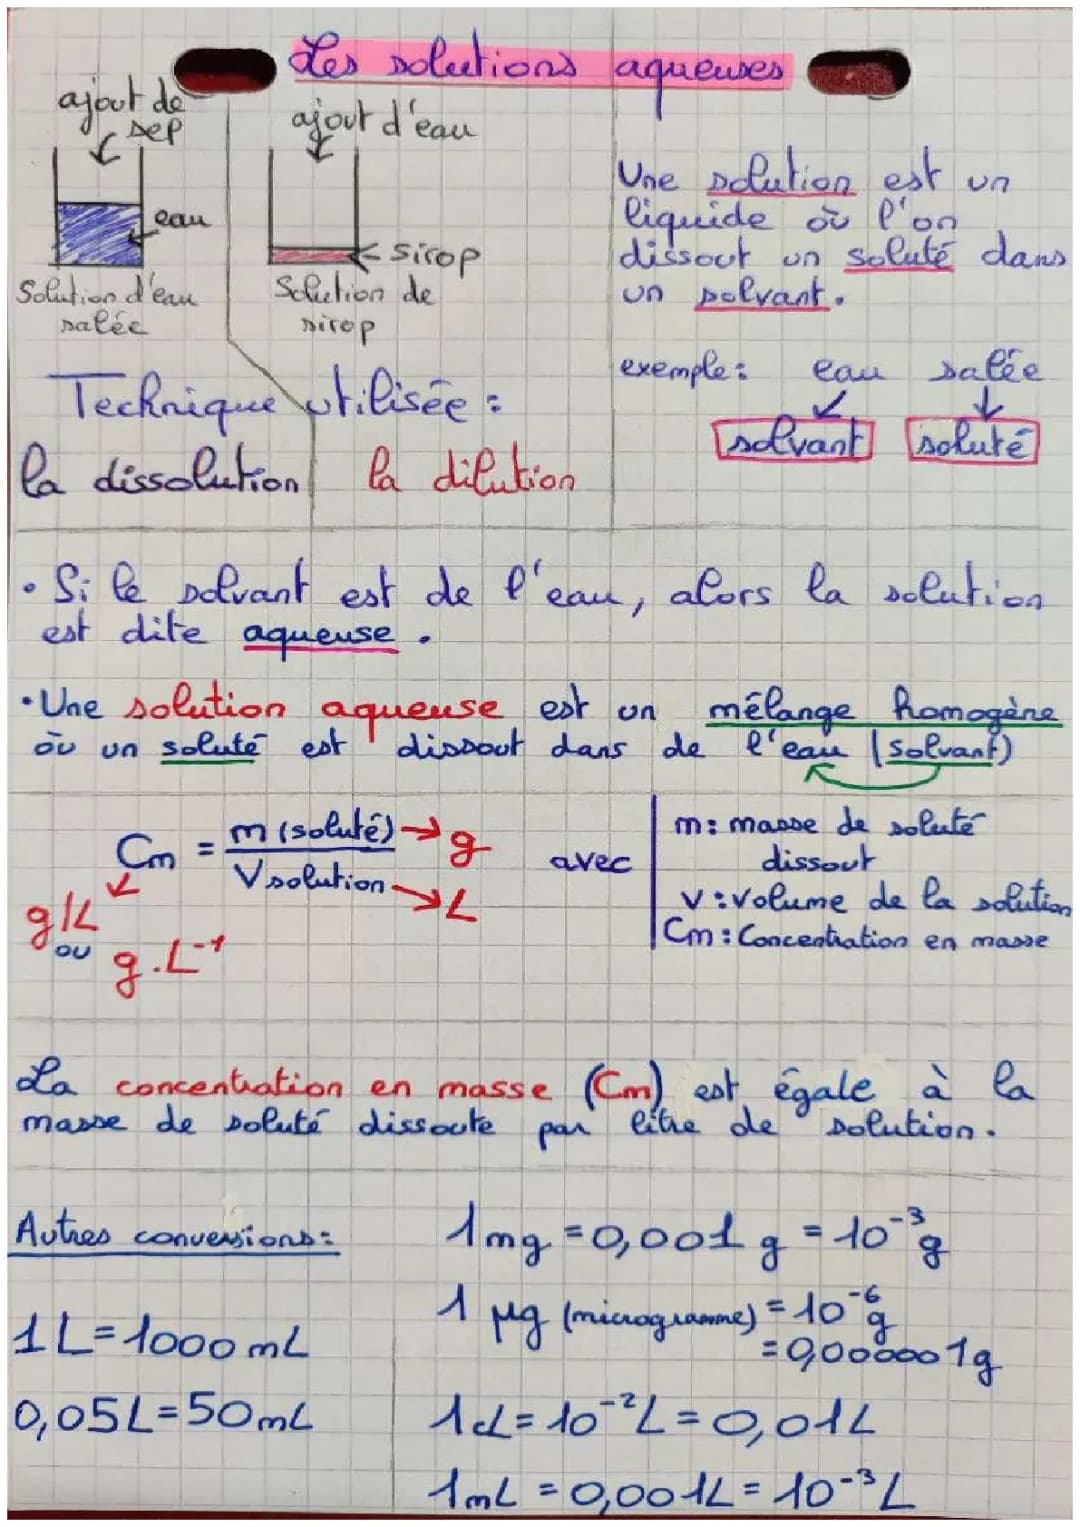 Les solutions aqueuses
ajout de
sel
eau
Solution d'eau
salée
ajout d'eau
sirop
Solution de
sirop
Technique utilisée :
la dissolution
la dilution
Une solution est un
liquide où l'on
dissout un soluté dans
un solvant.
exemple : eau salée
solvant soluté
• Si le solvant est de l'eau, alors la solution
est dite aqueuse.
• Une solution aqueuse est un mélange homogène
où un soluté est dissout dans de l'eau (solvant)
Cm = m (soluté) → g
V solution → L
g/L
ou
g.L⁻¹
avec
m : masse de soluté
dissout
V : volume de la solution
Cm : Concentration en masse
La concentration en masse (Cm) est égale à la
masse de soluté dissoute par litre de solution.
Autres conversions :
1L = 1000 mL
0,05L = 50mL
1 mg = 0,001 g = 10⁻³ g
1 µg (microgramme) = 10⁻⁶ g
= 0,000001g
1cL = 10⁻² L = 0,01L
1mL = 0,001L = 10⁻³ L